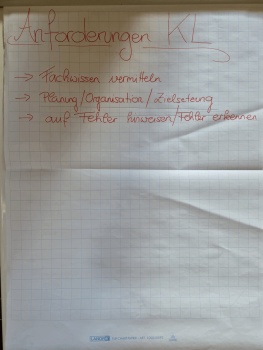 Anforderungen KL
→ Fachwissen vermitteln
→ Planung/Organisation/Zielsetzung
→ auf Fehler hinweisen/Fehler erkennen